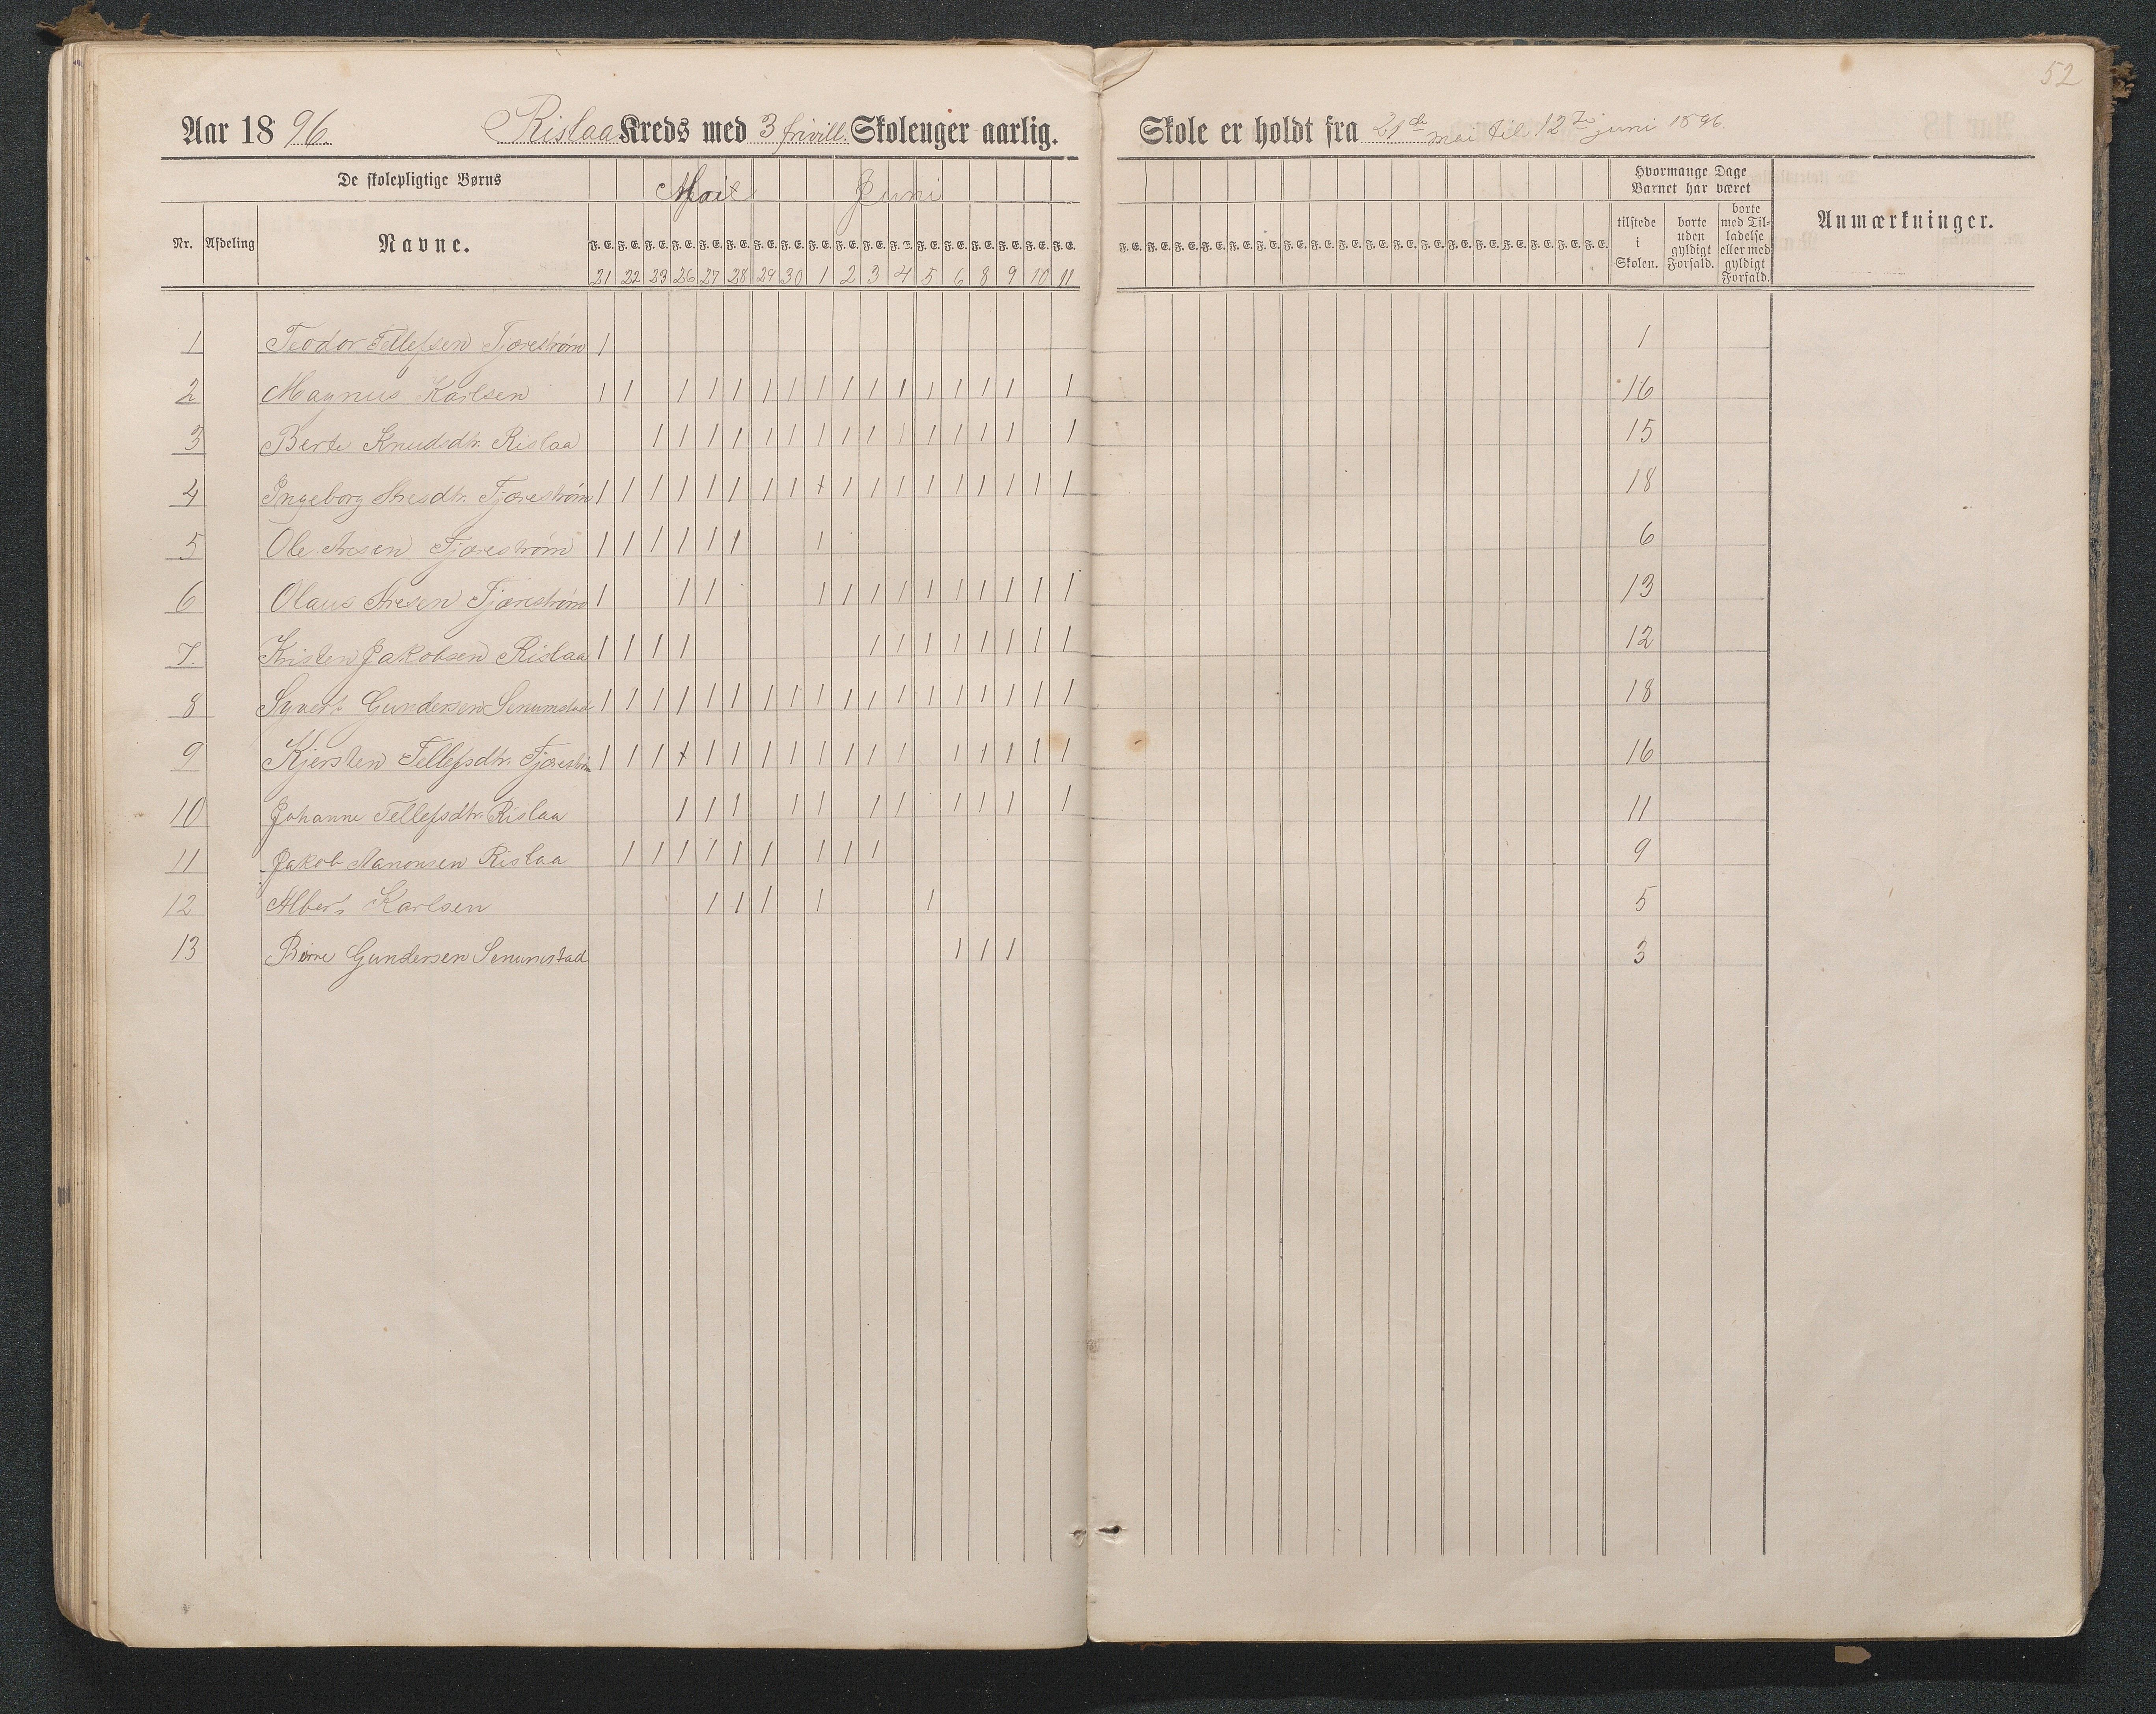 52
Aar 1896. Rislaa Kreds med 3 frivill. Skoleuger aarlig. Skole er holdt fra 21de mai til 12te juni 1896.
De skolepligtige Børns Mai Juni Hvormange Dage Barnet har været
Nr. Afdeling Navne. F. E. F. E. F. E. F. E. F. E. F. E. F. E. F. E. F. E. F. E. F. E. F. E. F. E. F. E. F. E. F. E. F. E. F. E. F. E. F. E. F. E. F. E. F. E. F. E. F. E. F. E. F. E. F. E. F. E. F. E. F. E. F. E. F. E. F. E. F. E. F. E. tilstede i Skolen. borte uden gyldigt Forfald. borte med Tilladelse eller med gyldigt Forfald. Anmærkninger.
21 22 23 26 27 28 29 30 1 2 3 4 5 6 8 9 10 11
1 Teodor Tellefsen Tjørestrøm 1 1
2 Magnus Karlsen 1 1 1 1 1 1 1 1 1 1 1 1 1 1 1 1 16
3 Berte Knudsdtr. Rislaa 1 1 1 1 1 1 1 1 1 1 1 1 1 1 1 15
4 Ingeborg Aresdtr. Tjørestrøm 1 1 1 1 1 1 1 1 1 1 1 1 1 1 1 1 1 1 18
5 Ole Aresen Tjørestrøm 1 1 1 1 1 1 1 6
6 Olaus Aresen Tjørestrøm 1 1 1 1 1 1 1 1 1 1 1 1 1 13
7. Kristen Jakobsen Rislaa 1 1 1 1 1 1 1 1 1 1 1 1 12
8 Syvert Gundersen Senumstad 1 1 1 1 1 1 1 1 1 1 1 1 1 1 1 1 1 1 18
9 Kjersten Tellefsdtr. Tjørestrøm 1 1 1 1 1 1 1 1 1 1 1 1 1 1 1 1 1 16
10 Johanne Tellefsdtr. Rislaa 1 1 1 1 1 1 1 1 1 1 1 11
11 Jakob Aanonsen Rislaa 1 1 1 1 1 1 1 1 1 9
12 Albert Karlsen 1 1 1 1 1 5
13 Børre Gundersen Senumstad 1 1 1 3